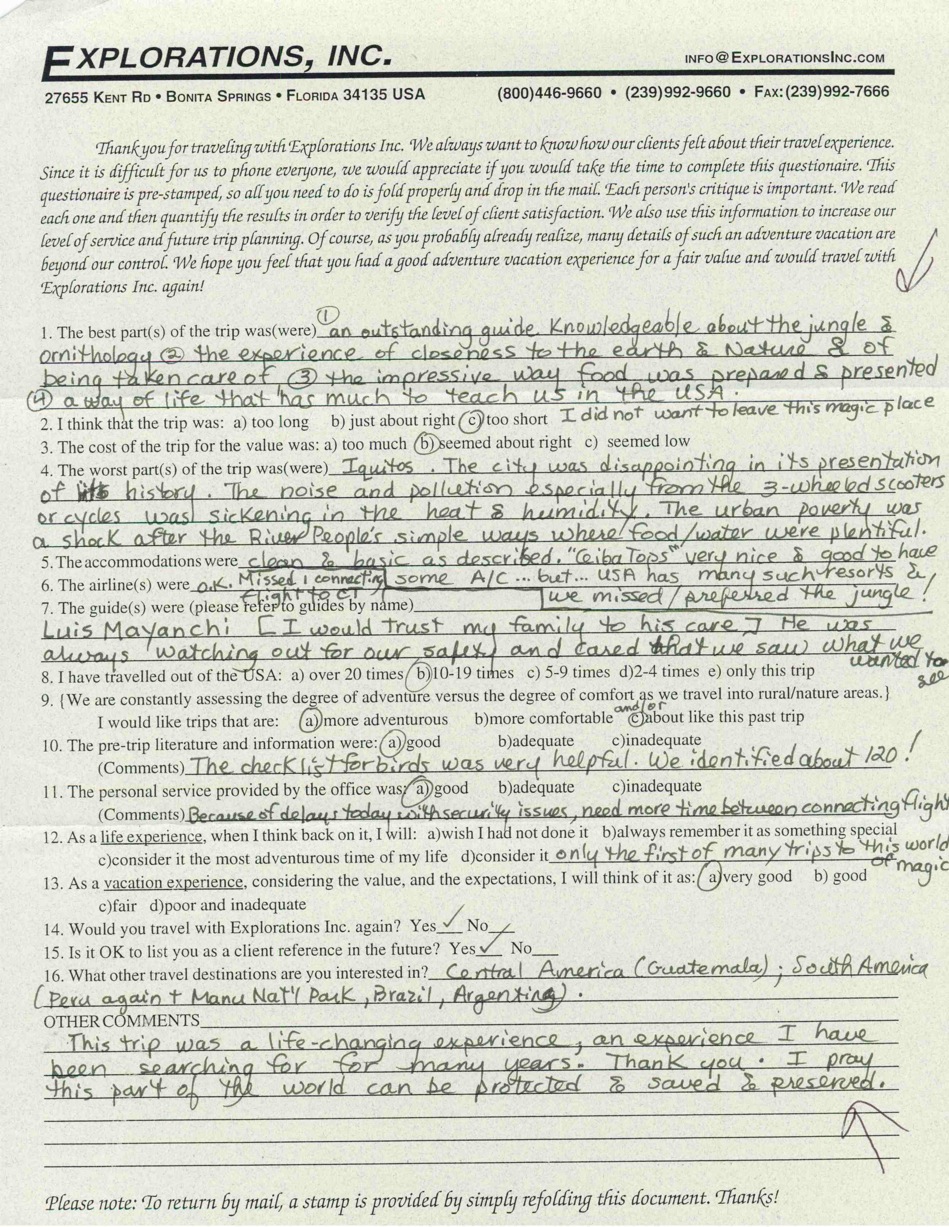 EXPLORATIONS, INC.
INFO@EXPLORATIONSINC.COM
27655 KENT RD • BONITA SPRINGS • FLORIDA 34135 USA
(800)446-9660 • (239)992-9660 • FAX:(239)992-7666
Thank you for traveling with Explorations Inc. We always want to know how our clients felt about their travel experience.
Since it is difficult for us to phone everyone, we would appreciate if you would take the time to complete this questionaire. This
questionaire is pre-stamped, so all you need to do is fold properly and drop in the mail. Each person's critique is important. We read
each one and then quantify the results in order to verify the level of client satisfaction. We also use this information to increase our
level of service and future trip planning. Of course, as you probably already realize, many details of such an adventure vacation are
beyond our control. We hope you feel that you had a good adventure vacation experience for a fair value and would travel with
Explorations Inc. again!
1. The best part(s) of the trip was(were) ① an outstanding guide. Knowledgeable about the jungle &
ornithology ② the experience of closeness to the earth & Nature & of
being taken care of, ③ the impressive way food was prepared & presented
④ a way of life that has much to teach us in the USA.
2. I think that the trip was: a) too long b) just about right c) too short I did not want to leave this magic place
3. The cost of the trip for the value was: a) too much b) seemed about right c) seemed low
4. The worst part(s) of the trip was(were) Iquitos. The city was disappointing in its presentation
of its history. The noise and pollution especially from the 3-wheeled scooters
or cycles was sickening in the heat & humidity. The urban poverty was
a shock after the River People's simple ways where food/water were plentiful.
5. The accommodations were clean & basic as described. "CeibaTops" very nice & good to have
6. The airline(s) were O.K. Missed 1 connecting some A/C ... but... USA has many such resorts &
flight to CT
we missed/preferred the jungle!
7. The guide(s) were (please refer to guides by name)
Luis Mayanchi [I would trust my family to his care] He was
always watching out for our safety and cared that we saw what we
wanted to
see
8. I have travelled out of the USA: a) over 20 times b)10-19 times c) 5-9 times d)2-4 times e) only this trip
9. {We are constantly assessing the degree of adventure versus the degree of comfort as we travel into rural/nature areas.}
and/or
I would like trips that are: a)more adventurous b)more comfortable c)about like this past trip
10. The pre-trip literature and information were: a) good b)adequate c)inadequate
(Comments) The checklist for birds was very helpful. We identified about 120!
11. The personal service provided by the office was: a) good b)adequate c)inadequate
(Comments) Because of delays today with security issues, need more time between connecting flight
12. As a life experience, when I think back on it, I will: a)wish I had not done it b)always remember it as something special
c)consider it the most adventurous time of my life d)consider it only the first of many trips to this world
of magic
13. As a vacation experience, considering the value, and the expectations, I will think of it as: a)very good b) good
c)fair d)poor and inadequate
14. Would you travel with Explorations Inc. again? Yes ✓ No
15. Is it OK to list you as a client reference in the future? Yes ✓ No
16. What other travel destinations are you interested in? Central America (Guatemala); South America
(Peru again + Manu Nat'l Park, Brazil, Argentina).
OTHER COMMENTS
This trip was a life-changing experience, an experience I have
been searching for for many years. Thank you. I pray
this part of the world can be protected & saved & preserved.
Please note: To return by mail, a stamp is provided by simply refolding this document. Thanks!